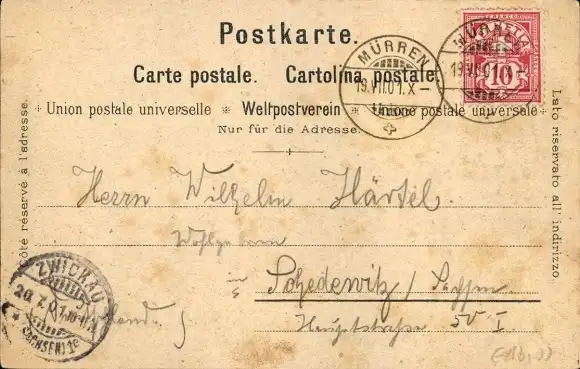 Postkarte.
Carte postale. Cartolina postale.
Union postale universelle * Weltpostverein * Unione postale universale
Nur für die Adresse.
Côté réservé à l'adresse.
Lato riservato all' indirizzo
MÜRREN
19.VII.01.X–
MÜRREN
19.VII.01.X
FRANCO
10
Herrn Wilhelm Härtel
Wohlgeboren
in Schedewitz / Sachsen
Hauptstraße 50 I
ZWICKAU
20.7.01
(SACHSEN) 1c